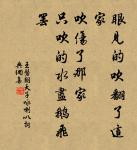 眼見的吹翻了這
家
吹傷了那家
只吹的水盡鵝飛
罷
王磐朝天子咏喇叭詞
典網集